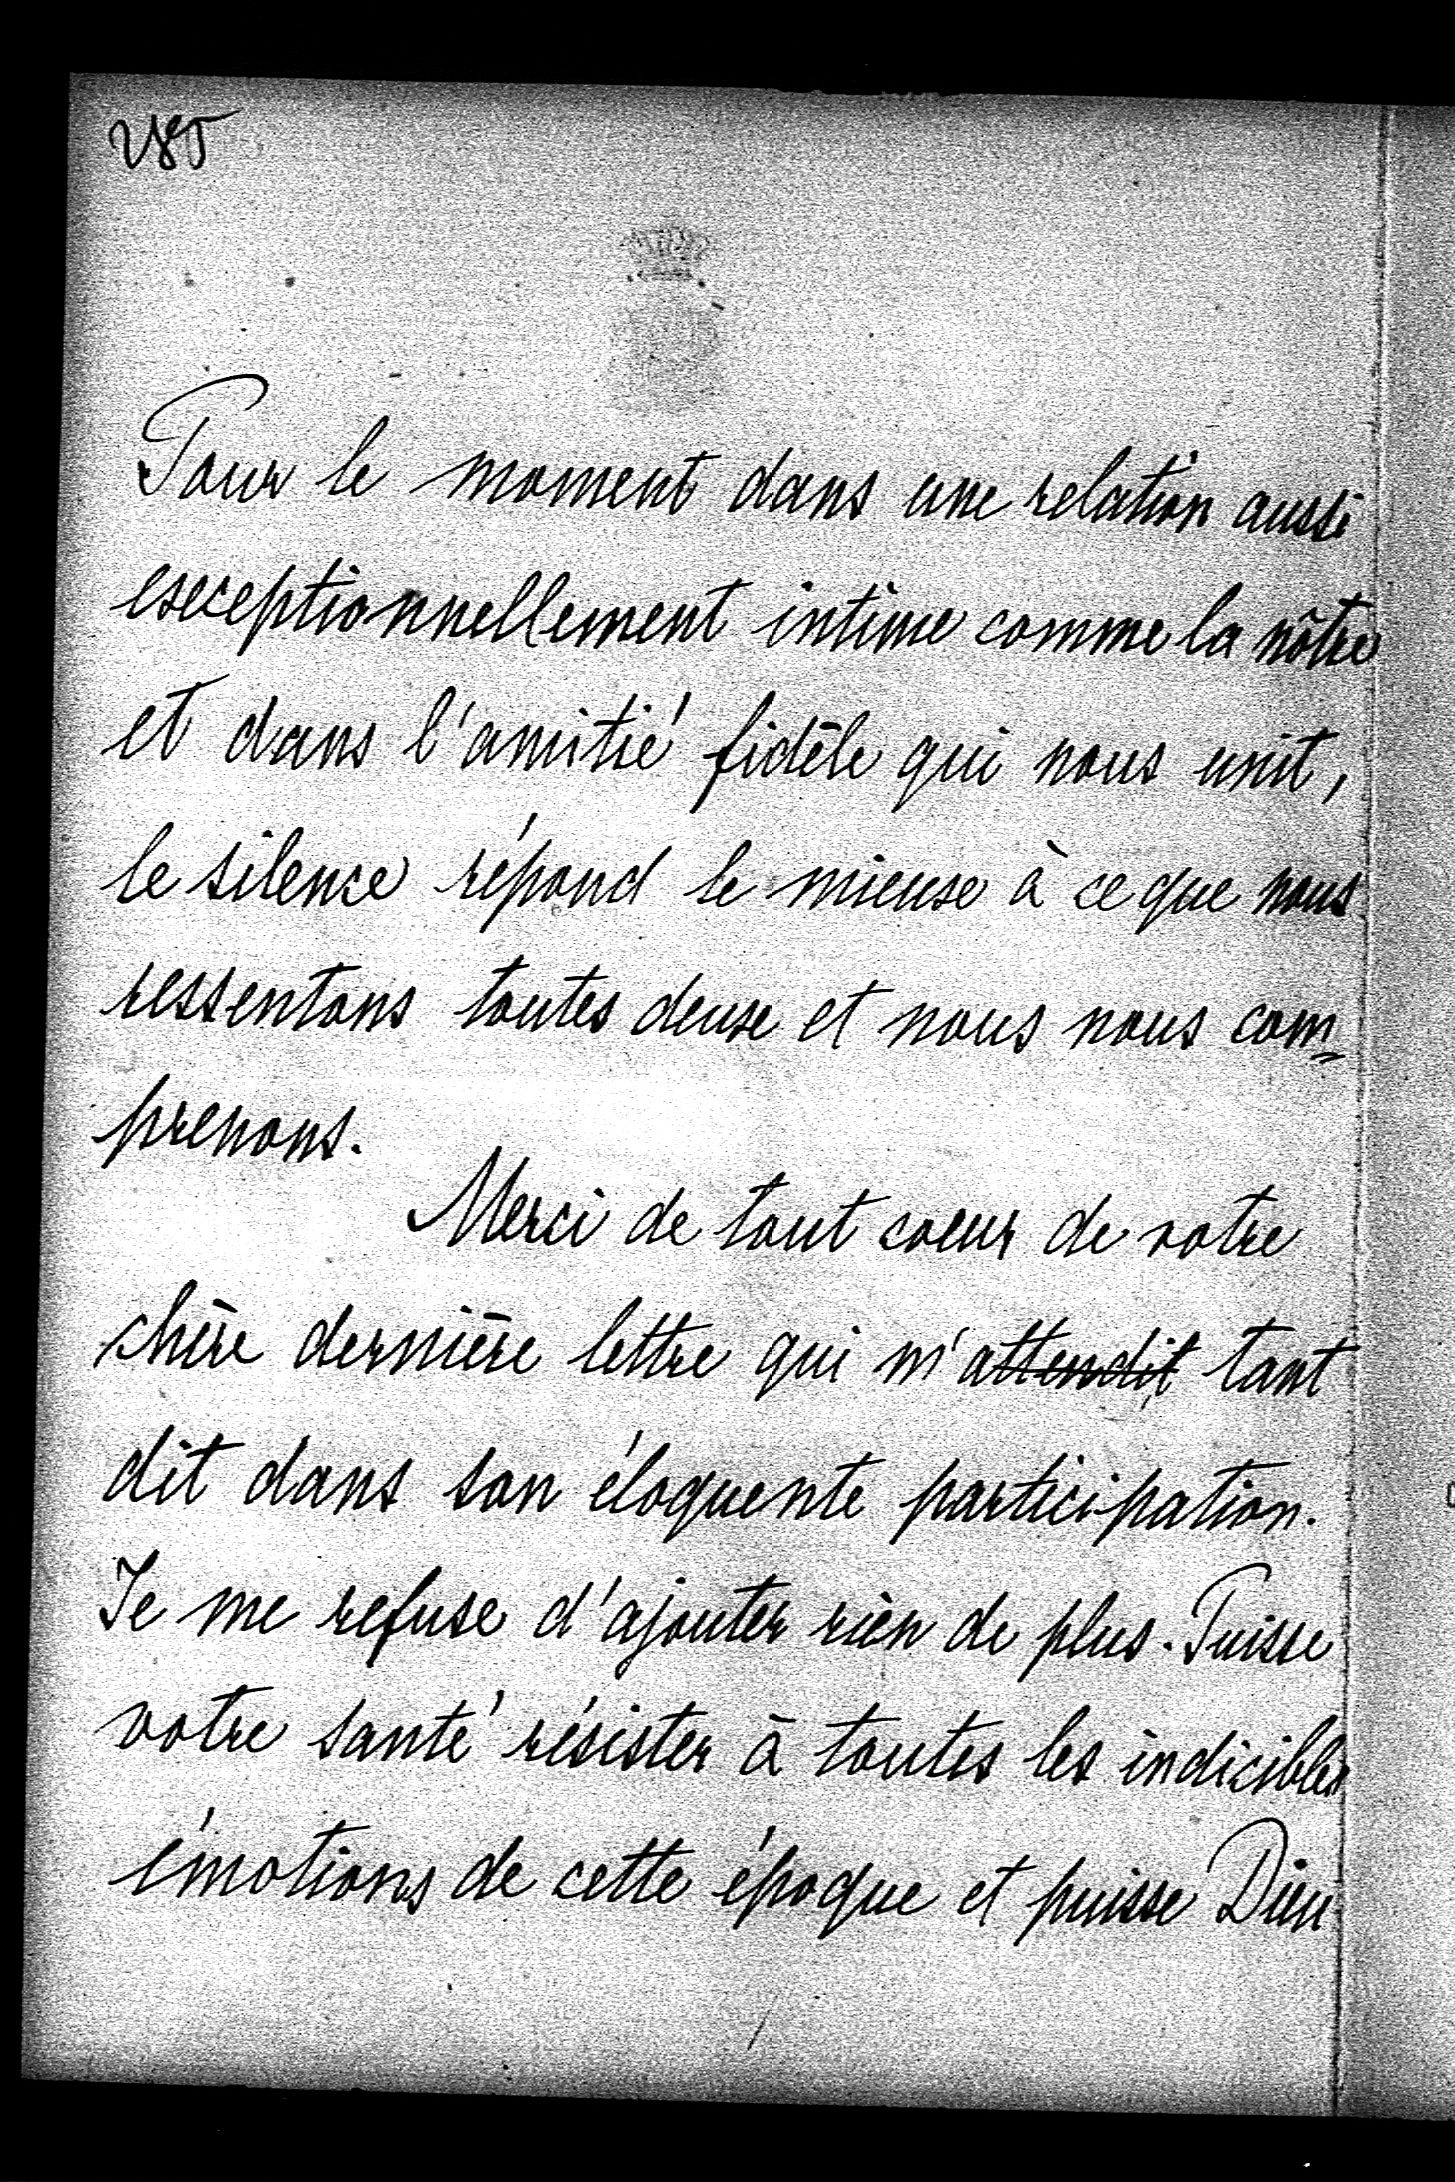 285
Pour le moment dans une relation aussi
exceptionnellement intime comme la nôtre
et dans l'amitié fidèle qui nous unit,
le silence répond le mieux à ce que nous
ressentons toutes deux et nous nous com=
prenons.
Merci de tout coeur de votre
chère dernière lettre qui m'attendit tant
dit dans son éloquente participation.
Je me refuse d'ajouter rien de plus. Puisse
votre santé résister à toutes les indicibles
émotions de cette époque et puisse Dieu